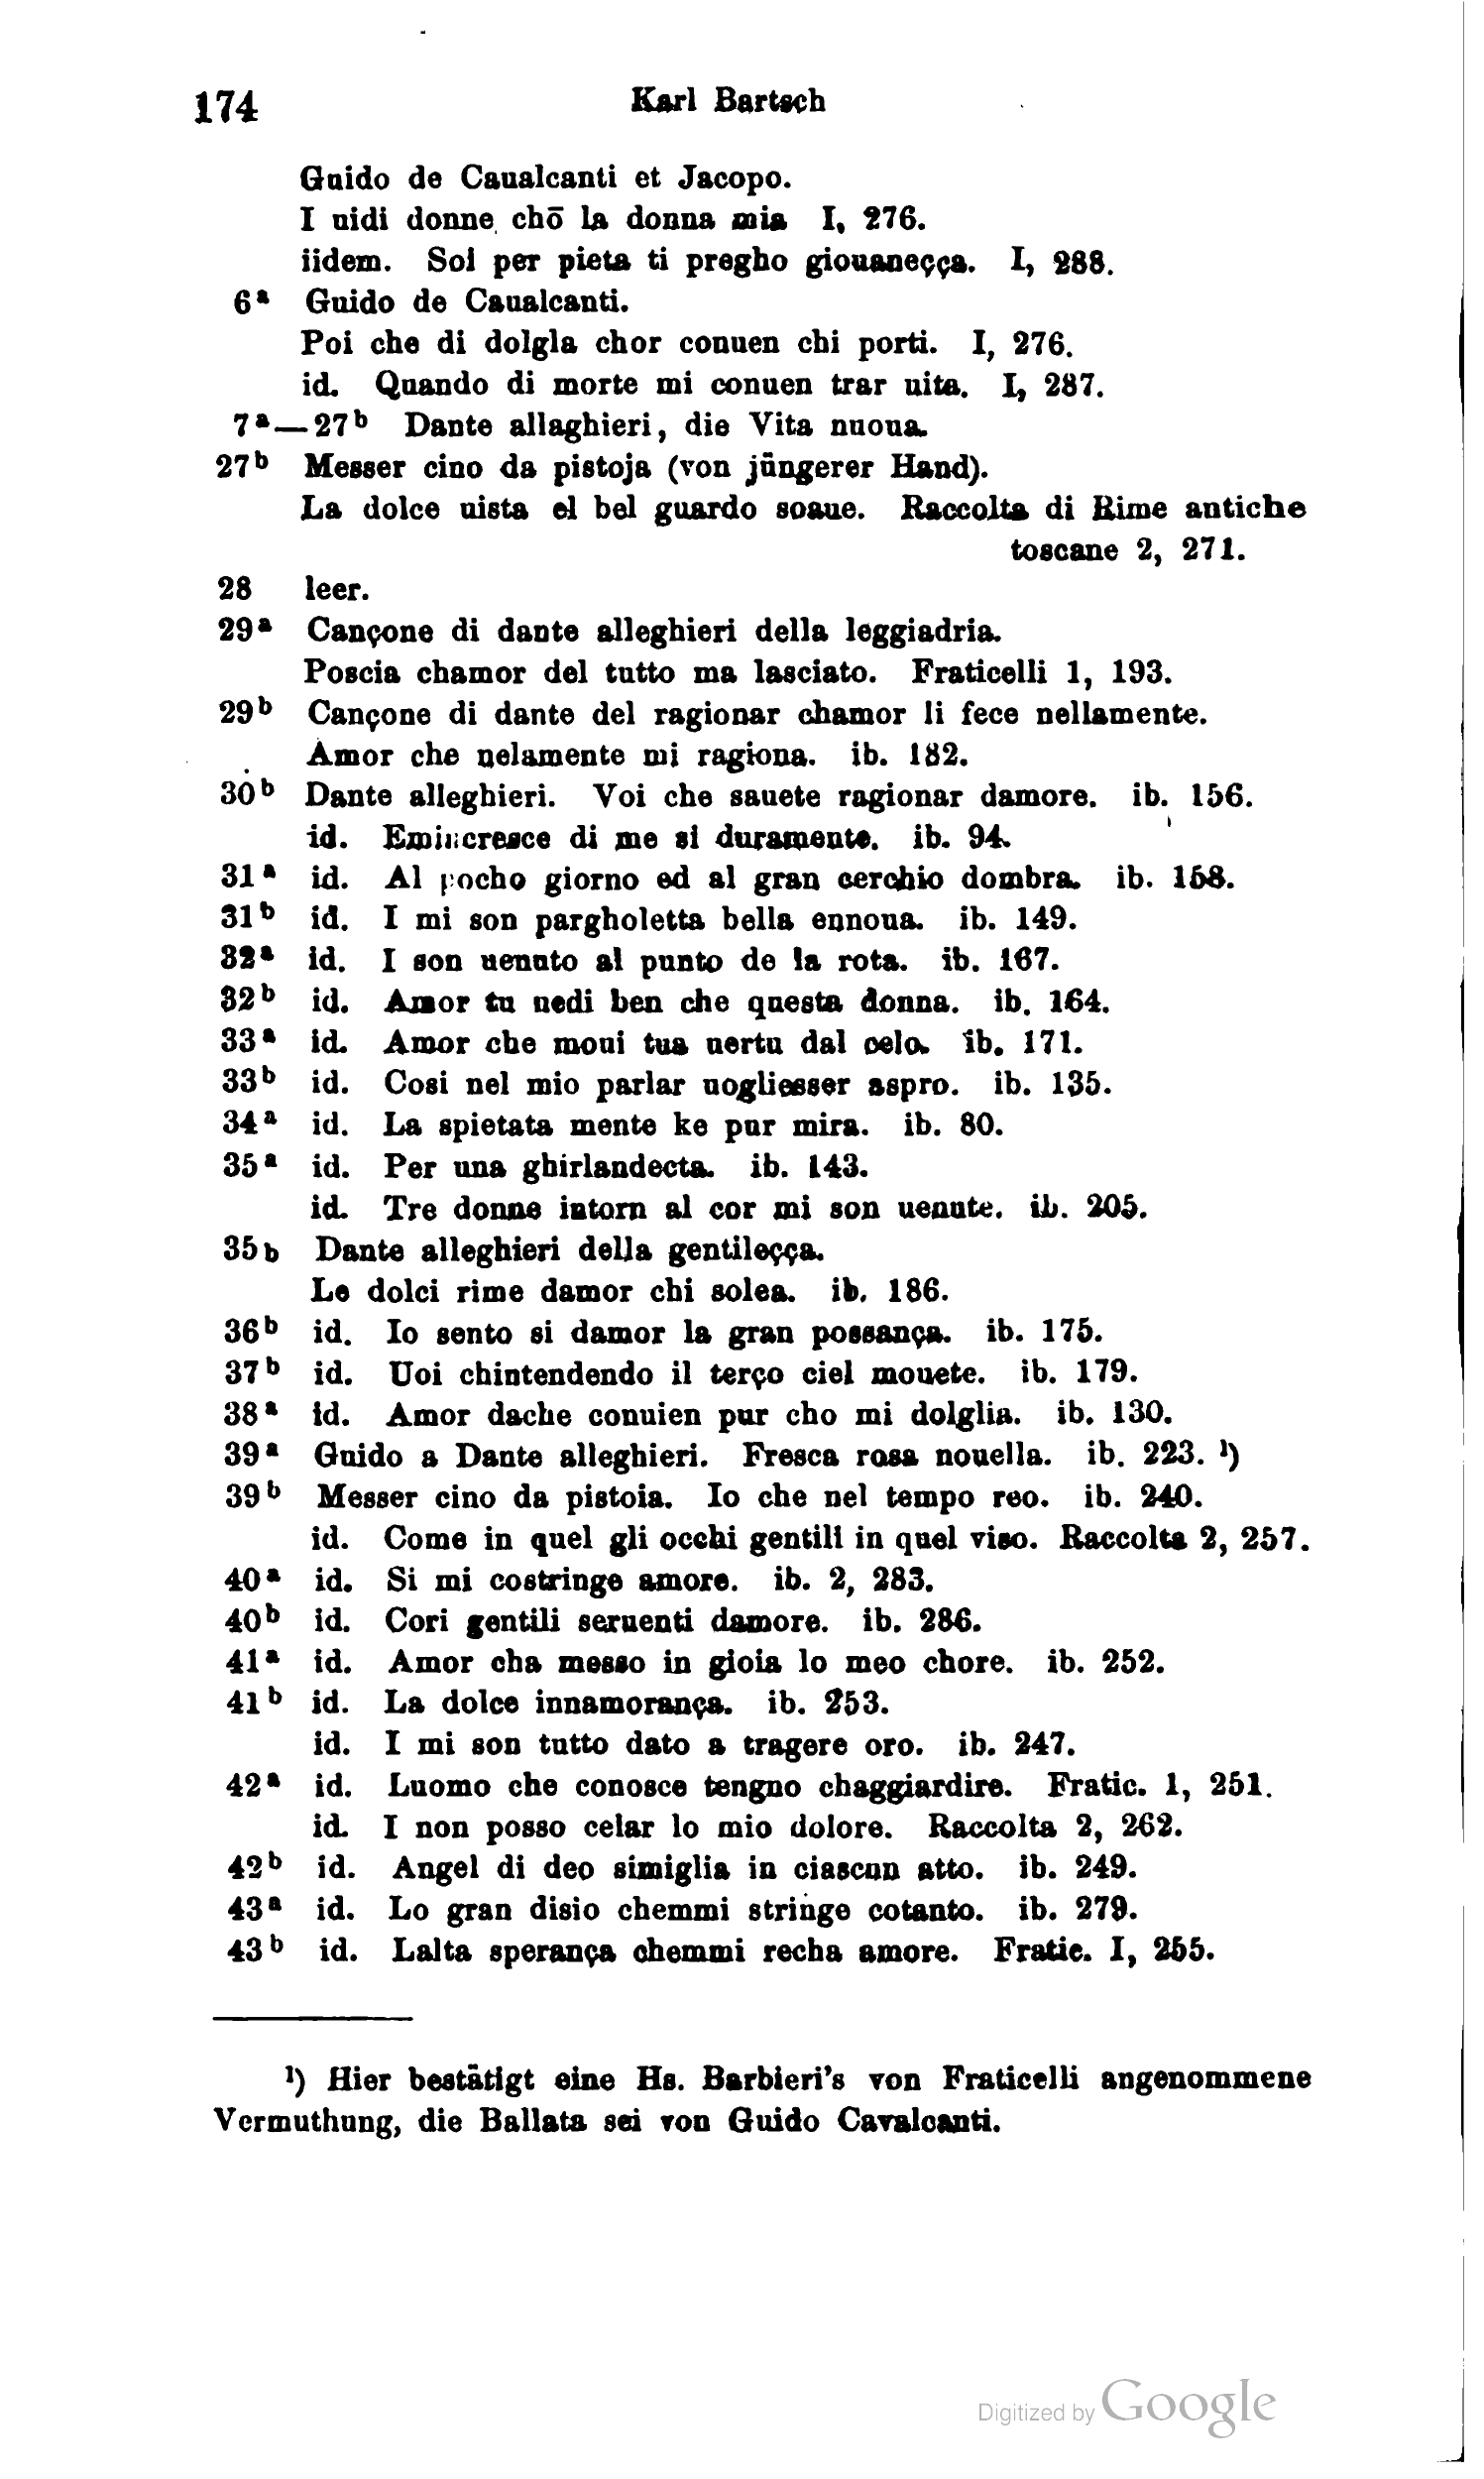 174 Karl Bartsch
Guido de Caualcanti et Jacopo.
I uidi donne chō la donna mia I, 276.
iidem. Sol per pieta ti pregho giouaneçça. I, 288.
6ᵃ Guido de Caualcanti.
Poi che di dolgla chor conuen chi porti. I, 276.
id. Quando di morte mi conuen trar uita. I, 287.
7ᵃ—27ᵇ Dante allaghieri, die Vita nuoua.
27ᵇ Messer cino da pistoja (von jüngerer Hand).
La dolce uista el bel guardo soaue. Raccolta di Rime antiche
toscane 2, 271.
28 leer.
29ᵃ Cançone di dante alleghieri della leggiadria.
Poscia chamor del tutto ma lasciato. Fraticelli 1, 193.
29ᵇ Cançone di dante del ragionar chamor li fece nellamente.
Amor che nelamente mi ragiona. ib. 182.
30ᵇ Dante alleghieri. Voi che sauete ragionar damore. ib. 156.
id. Emincresce di me si duramente. ib. 94.
31ᵃ id. Al pocho giorno ed al gran cerchio dombra. ib. 158.
31ᵇ id. I mi son pargholetta bella ennoua. ib. 149.
32ᵃ id. I son uenuto al punto de la rota. ib. 167.
32ᵇ id. Amor tu uedi ben che questa donna. ib. 164.
33ᵃ id. Amor che moui tua uertu dal celo. ib. 171.
33ᵇ id. Cosi nel mio parlar uogliesser aspro. ib. 135.
34ᵃ id. La spietata mente ke pur mira. ib. 80.
35ᵃ id. Per una ghirlandecta. ib. 143.
id. Tre donne intorn al cor mi son uenute. ib. 205.
35b Dante alleghieri della gentileçça.
Le dolci rime damor chi solea. ib. 186.
36ᵇ id. Io sento si damor la gran possança. ib. 175.
37ᵇ id. Uoi chintendendo il terço ciel mouete. ib. 179.
38ᵃ id. Amor dache conuien pur cho mi dolglia. ib. 130.
39ᵃ Guido a Dante alleghieri. Fresca rosa nouella. ib. 223. ¹)
39ᵇ Messer cino da pistoia. Io che nel tempo reo. ib. 240.
id. Come in quel gli occhi gentili in quel viso. Raccolta 2, 257.
40ᵃ id. Si mi costringe amore. ib. 2, 283.
40ᵇ id. Cori gentili seruenti damore. ib. 286.
41ᵃ id. Amor cha messo in gioia lo meo chore. ib. 252.
41ᵇ id. La dolce innamorança. ib. 253.
id. I mi son tutto dato a tragere oro. ib. 247.
42ᵃ id. Luomo che conosce tengno chaggiardire. Fratic. 1, 251.
id. I non posso celar lo mio dolore. Raccolta 2, 262.
42ᵇ id. Angel di deo simiglia in ciascun atto. ib. 249.
43ᵃ id. Lo gran disio chemmi stringe cotanto. ib. 279.
43ᵇ id. Lalta sperança chemmi recha amore. Fratic. I, 255.
¹) Hier bestätigt eine Hs. Barbieri's von Fraticelli angenommene
Vermuthung, die Ballata sei von Guido Cavalcanti.
Digitized by Google